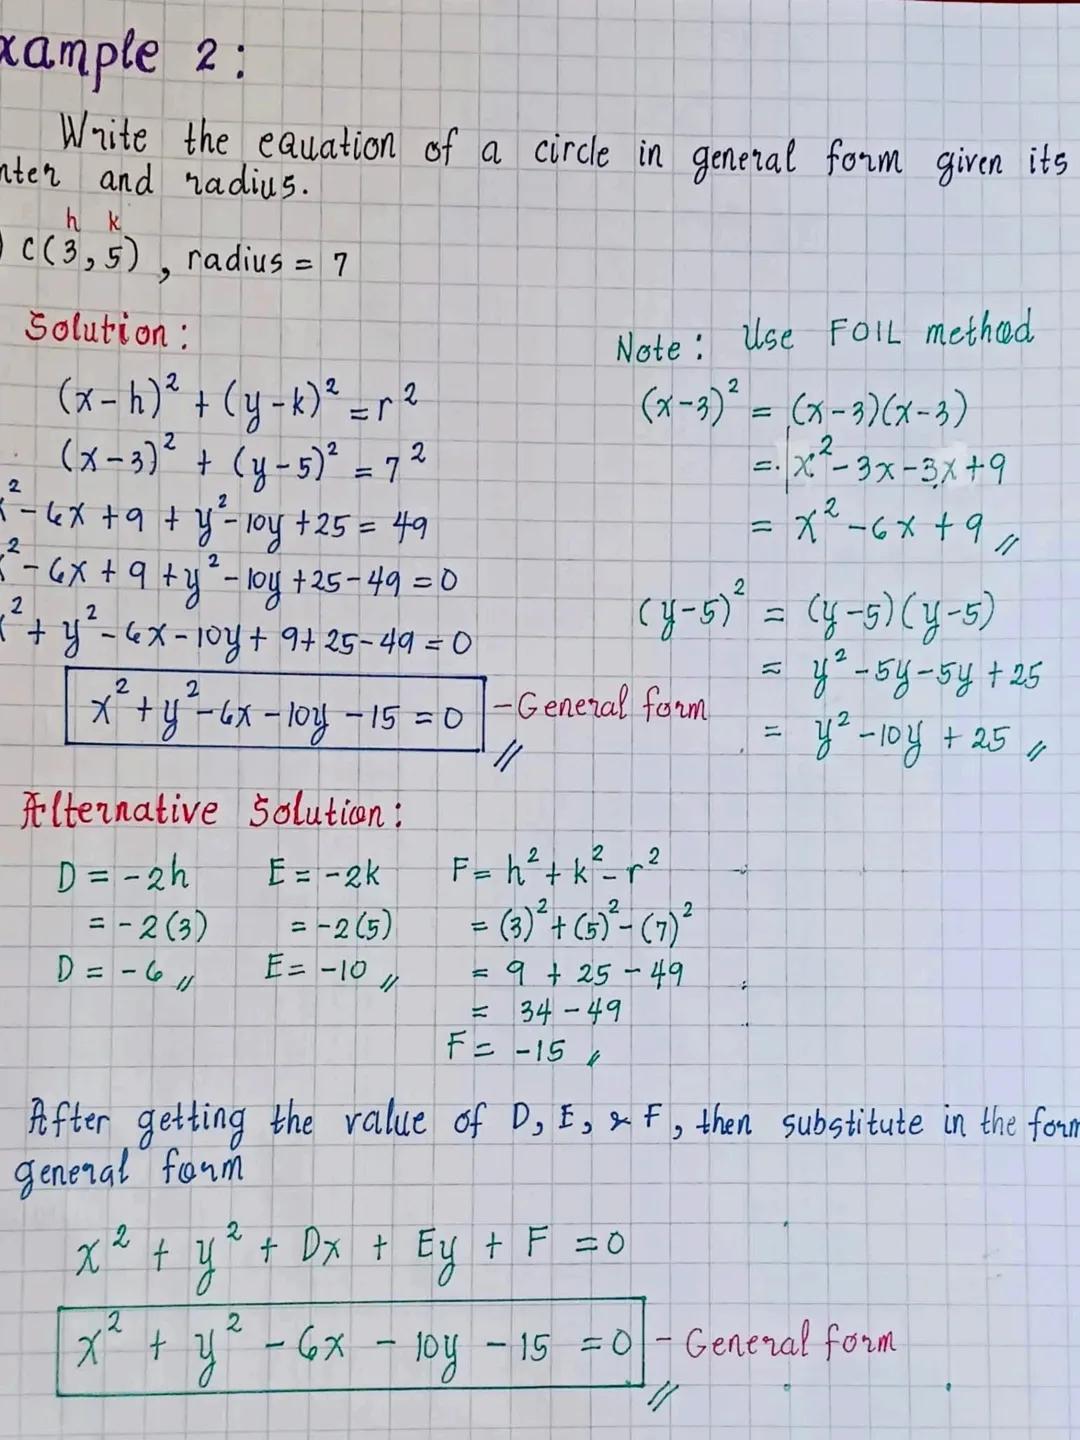 xample 2:
Write the equation of a circle in general form given its
nter and radius.
h k
) C(3, 5), radius = 7
Solution:
(x-h)² + (y-k)² = r²
(x-3)² + (y-5)² = 7²
x²-6x+9 + y²-10y+25 = 49
x²-6x+9+y²-10y+25-49=0
x²+y²-6x-10y+9+25-49=0
x²+y²-6x-10y-15=0 - General form
Note: Use FOIL method
(x-3)² = (x-3)(x-3)
= x²-3x-3x+9
= x²-6x+9
(y-5)² = (y-5)(y-5)
= y²-5y-5y+25
= y²-10y+25
Alternative Solution:
D = -2h
= -2(3)
D = -6
E = -2k
= -2(5)
E = -10
F = h²+k²-r²
= (3)²+(5)²-(7)²
= 9 + 25 - 49
= 34 - 49
F = -15
After getting the value of D, E, & F, then substitute in the form
general form
x² + y² + Dx + Ey + F = 0
x² + y² - 6x - 10y - 15 = 0 - General form